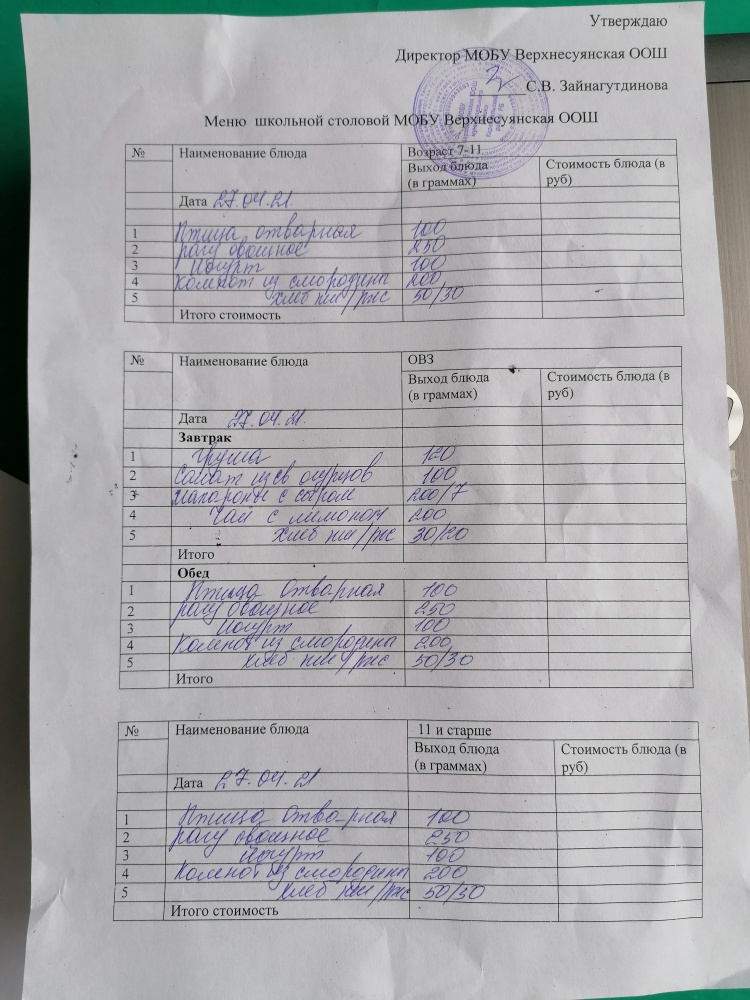 Утверждаю
Директор МОБУ Верхнесуянская ООШ
С.В. Зайнагутдинова
Меню школьной столовой МОБУ Верхнесуянская ООШ
№ Наименование блюда Возраст 7-11
Выход блюда (в граммах) Стоимость блюда (в руб)
Дата 27.04.21
1 Птица отварная 100
2 рагу овощное 250
3 Йогурт 100
4 Компот из смородины 200
5 хлеб пш/рж 50/30
Итого стоимость
№ Наименование блюда ОВЗ
Выход блюда (в граммах) Стоимость блюда (в руб)
Дата 27.04.21
Завтрак
1 Груша 120
2 Салат из св огурцов 100
3 макароны с сыром 200/7
4 Чай с лимоном 200
5 Хлеб пш/рж 30/20
Итого
Обед
1 Птица Отварная 100
2 рагу овощное 250
3 Йогурт 100
4 Компот из смородины 200
5 хлеб пш/рж 50/30
Итого
№ Наименование блюда 11 и старше
Выход блюда (в граммах) Стоимость блюда (в руб)
Дата 27.04.21
1 Птица Отварная 100
2 рагу овощное 250
3 Йогурт 100
4 Компот из смородины 200
5 Хлеб пш/рж 50/30
Итого стоимость